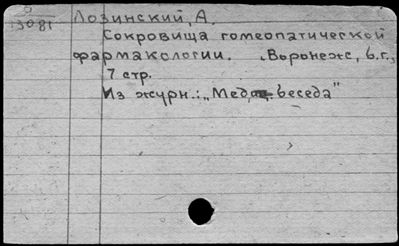 13081
Лозинский, А.
Сокровища гомеопатической
фармакологии. Воронеж, б.г.,
7 стр.
Из журн.: „Мед. беседа"